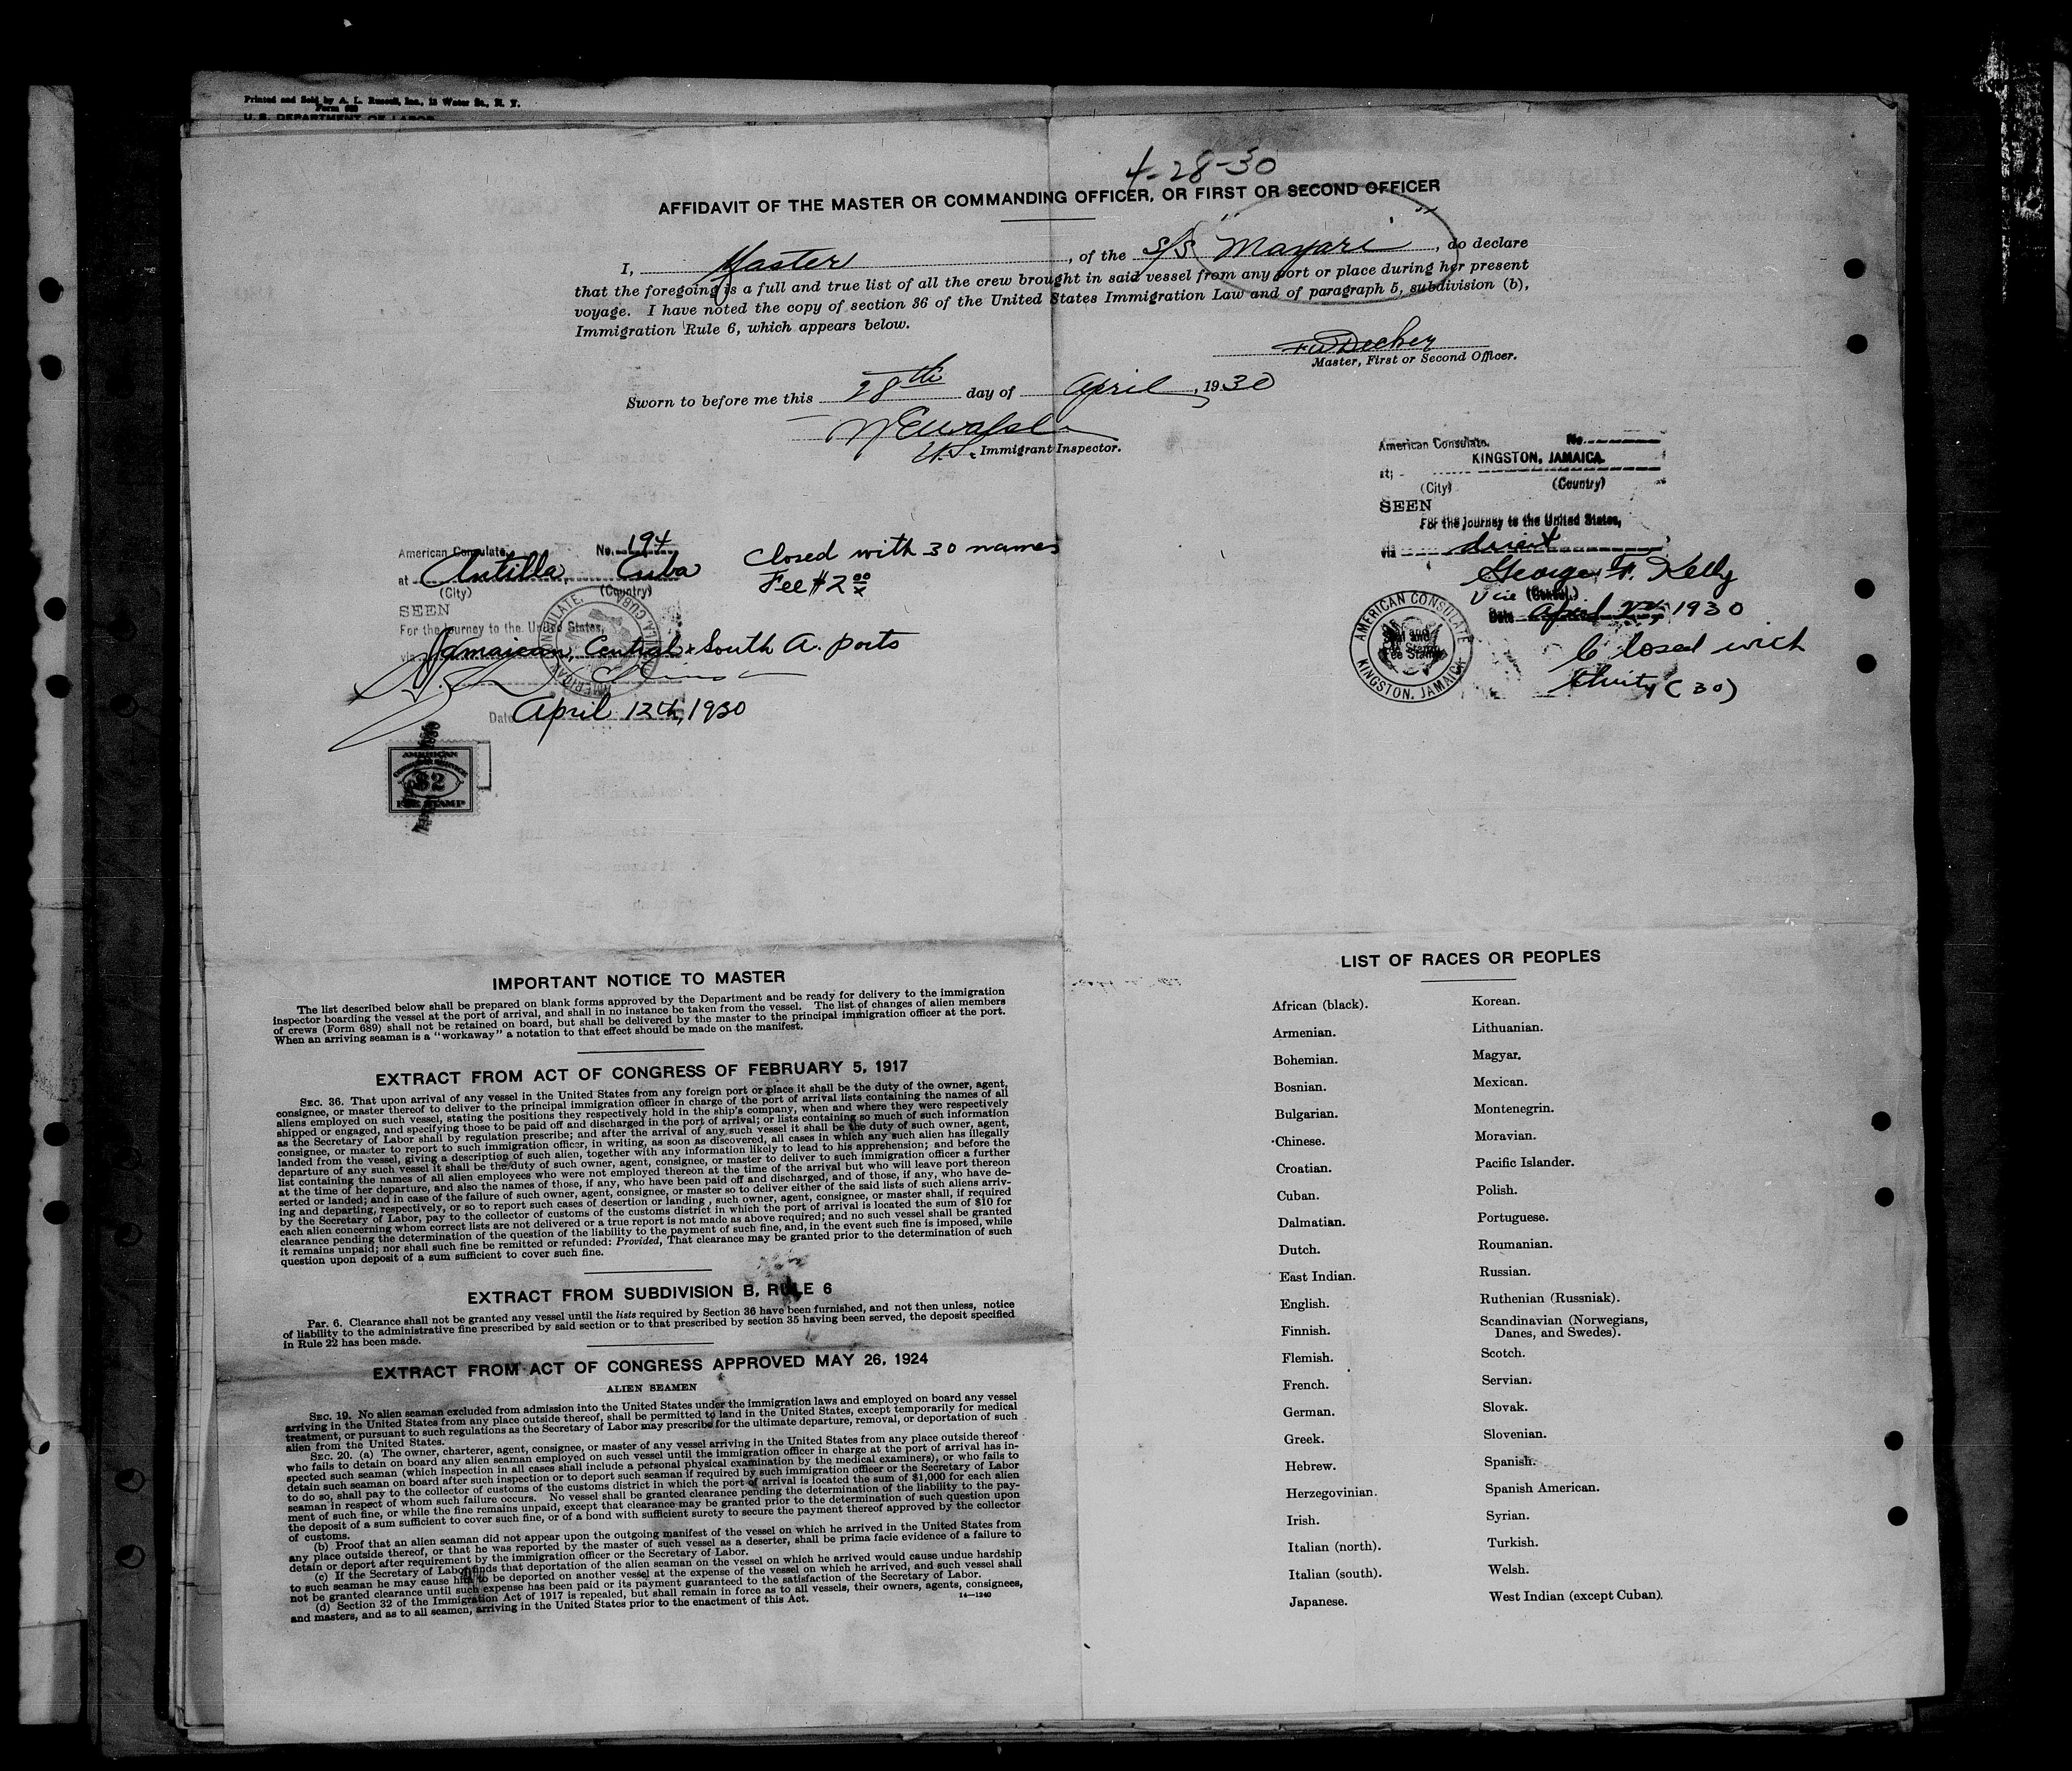 Printed and Sold by A. L. Russell, Inc., 12 Water St., N. Y.
Form 689
U. S. DEPARTMENT OF LABOR
4-28-30
AFFIDAVIT OF THE MASTER OR COMMANDING OFFICER, OR FIRST OR SECOND OFFICER
I, Master, of the S/S "Mayari", do declare
that the foregoing is a full and true list of all the crew brought in said vessel from any port or place during her present
voyage. I have noted the copy of section 36 of the United States Immigration Law and of paragraph 5, subdivision (b),
Immigration Rule 6, which appears below.
FW Decker
Master, First or Second Officer.
Sworn to before me this 28th day of April, 1930
U.S. Immigrant Inspector.
American Consulate, No. 194
at Antilla, Cuba
(City) (Country)
SEEN
For the Journey to the United States,
via Jamaican, Central & South A. ports
Date April 12th, 1930
Closed with 30 names
Fee $2.00
AMERICAN CONSULATE, ANTILLA, CUBA
AMERICAN
CONSULAR SERVICE
$2
FEE STAMP
American Consulate. No.
KINGSTON, JAMAICA.
at;
(City) (Country)
SEEN
For the Journey to the United States,
via direct
George F. Kelly
Vice (Consul.)
Date April 1930
AMERICAN CONSULATE
KINGSTON, JAMAICA
Closed with
thirty (30)
IMPORTANT NOTICE TO MASTER
The list described below shall be prepared on blank forms approved by the Department and be ready for delivery to the immigration
inspector boarding the vessel at the port of arrival, and shall in no instance be taken from the vessel. The list of changes of alien members
of crews (Form 689) shall not be retained on board, but shall be delivered by the master to the principal immigration officer at the port.
When an arriving seaman is a "workaway" a notation to that effect should be made on the manifest.
EXTRACT FROM ACT OF CONGRESS OF FEBRUARY 5, 1917
SEC. 36. That upon arrival of any vessel in the United States from any foreign port or place it shall be the duty of the owner, agent,
consignee, or master thereof to deliver to the principal immigration officer in charge of the port of arrival lists containing the names of all
aliens employed on such vessel, stating the positions they respectively hold in the ship's company, when and where they were respectively
shipped or engaged, and specifying those to be paid off and discharged in the port of arrival; or lists containing so much of such information
as the Secretary of Labor shall by regulation prescribe; and after the arrival of any such vessel it shall be the duty of such owner, agent,
consignee, or master to report to such immigration officer, in writing, as soon as discovered, all cases in which any such alien has illegally
landed from the vessel, giving a description of such alien, together with any information likely to lead to his apprehension; and before the
departure of any such vessel it shall be the duty of such owner, agent, consignee, or master to deliver to such immigration officer a further
list containing the names of all alien employees who were not employed thereon at the time of the arrival but who will leave port thereon
at the time of her departure, and also the names of those, if any, who have been paid off and discharged, and of those, if any, who have de-
serted or landed; and in case of the failure of such owner, agent, consignee, or master so to deliver either of the said lists of such aliens arriv-
ing and departing, respectively, or so to report such cases of desertion or landing, such owner, agent, consignee, or master shall, if required
by the Secretary of Labor, pay to the collector of customs of the customs district in which the port of arrival is located the sum of $10 for
each alien concerning whom correct lists are not delivered or a true report is not made as above required; and no such vessel shall be granted
clearance pending the determination of the question of the liability to the payment of such fine, and, in the event such fine is imposed, while
it remains unpaid; nor shall such fine be remitted or refunded: Provided, That clearance may be granted prior to the determination of such
question upon deposit of a sum sufficient to cover such fine.
EXTRACT FROM SUBDIVISION B, RULE 6
Par. 6. Clearance shall not be granted any vessel until the lists required by Section 36 have been furnished, and not then unless, notice
of liability to the administrative fine prescribed by said section or to that prescribed by section 35 having been served, the deposit specified
in Rule 22 has been made.
EXTRACT FROM ACT OF CONGRESS APPROVED MAY 26, 1924
ALIEN SEAMEN
SEC. 19. No alien seaman excluded from admission into the United States under the immigration laws and employed on board any vessel
arriving in the United States from any place outside thereof, shall be permitted to land in the United States, except temporarily for medical
treatment, or pursuant to such regulations as the Secretary of Labor may prescribe for the ultimate departure, removal, or deportation of such
alien from the United States.
SEC. 20. (a) The owner, charterer, agent, consignee, or master of any vessel arriving in the United States from any place outside thereof
who fails to detain on board any alien seaman employed on such vessel until the immigration officer in charge at the port of arrival has in-
spected such seaman (which inspection in all cases shall include a personal physical examination by the medical examiners), or who fails to
detain such seaman on board after such inspection or to deport such seaman if required by such immigration officer or the Secretary of Labor
to do so, shall pay to the collector of customs of the customs district in which the port of arrival is located the sum of $1,000 for each alien
seaman in respect of whom such failure occurs. No vessel shall be granted clearance pending the determination of the liability to the pay-
ment of such fine, or while the fine remains unpaid, except that clearance may be granted prior to the determination of such question upon
the deposit of a sum sufficient to cover such fine, or of a bond with sufficient surety to secure the payment thereof approved by the collector
of customs.
(b) Proof that an alien seaman did not appear upon the outgoing manifest of the vessel on which he arrived in the United States from
any place outside thereof, or that he was reported by the master of such vessel as a deserter, shall be prima facie evidence of a failure to
detain or deport after requirement by the immigration officer or the Secretary of Labor.
(c) If the Secretary of Labor finds that deportation of the alien seaman on the vessel on which he arrived would cause undue hardship
to such seaman he may cause him to be deported on another vessel at the expense of the vessel on which he arrived, and such vessel shall
not be granted clearance until such expense has been paid or its payment guaranteed to the satisfaction of the Secretary of Labor.
(d) Section 32 of the Immigration Act of 1917 is repealed, but shall remain in force as to all vessels, their owners, agents, consignees,
and masters, and as to all seamen, arriving in the United States prior to the enactment of this Act.
14—1240
LIST OF RACES OR PEOPLES
African (black).
Armenian.
Bohemian.
Bosnian.
Bulgarian.
Chinese.
Croatian.
Cuban.
Dalmatian.
Dutch.
East Indian.
English.
Finnish.
Flemish.
French.
German.
Greek.
Hebrew.
Herzegovinian.
Irish.
Italian (north).
Italian (south).
Japanese.
Korean.
Lithuanian.
Magyar.
Mexican.
Montenegrin.
Moravian.
Pacific Islander.
Polish.
Portuguese.
Roumanian.
Russian.
Ruthenian (Russniak).
Scandinavian (Norwegians,
Danes, and Swedes).
Scotch.
Servian.
Slovak.
Slovenian.
Spanish.
Spanish American.
Syrian.
Turkish.
Welsh.
West Indian (except Cuban).